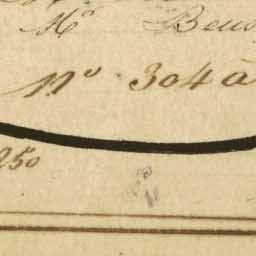 Mº Beus
nº 304 a
250